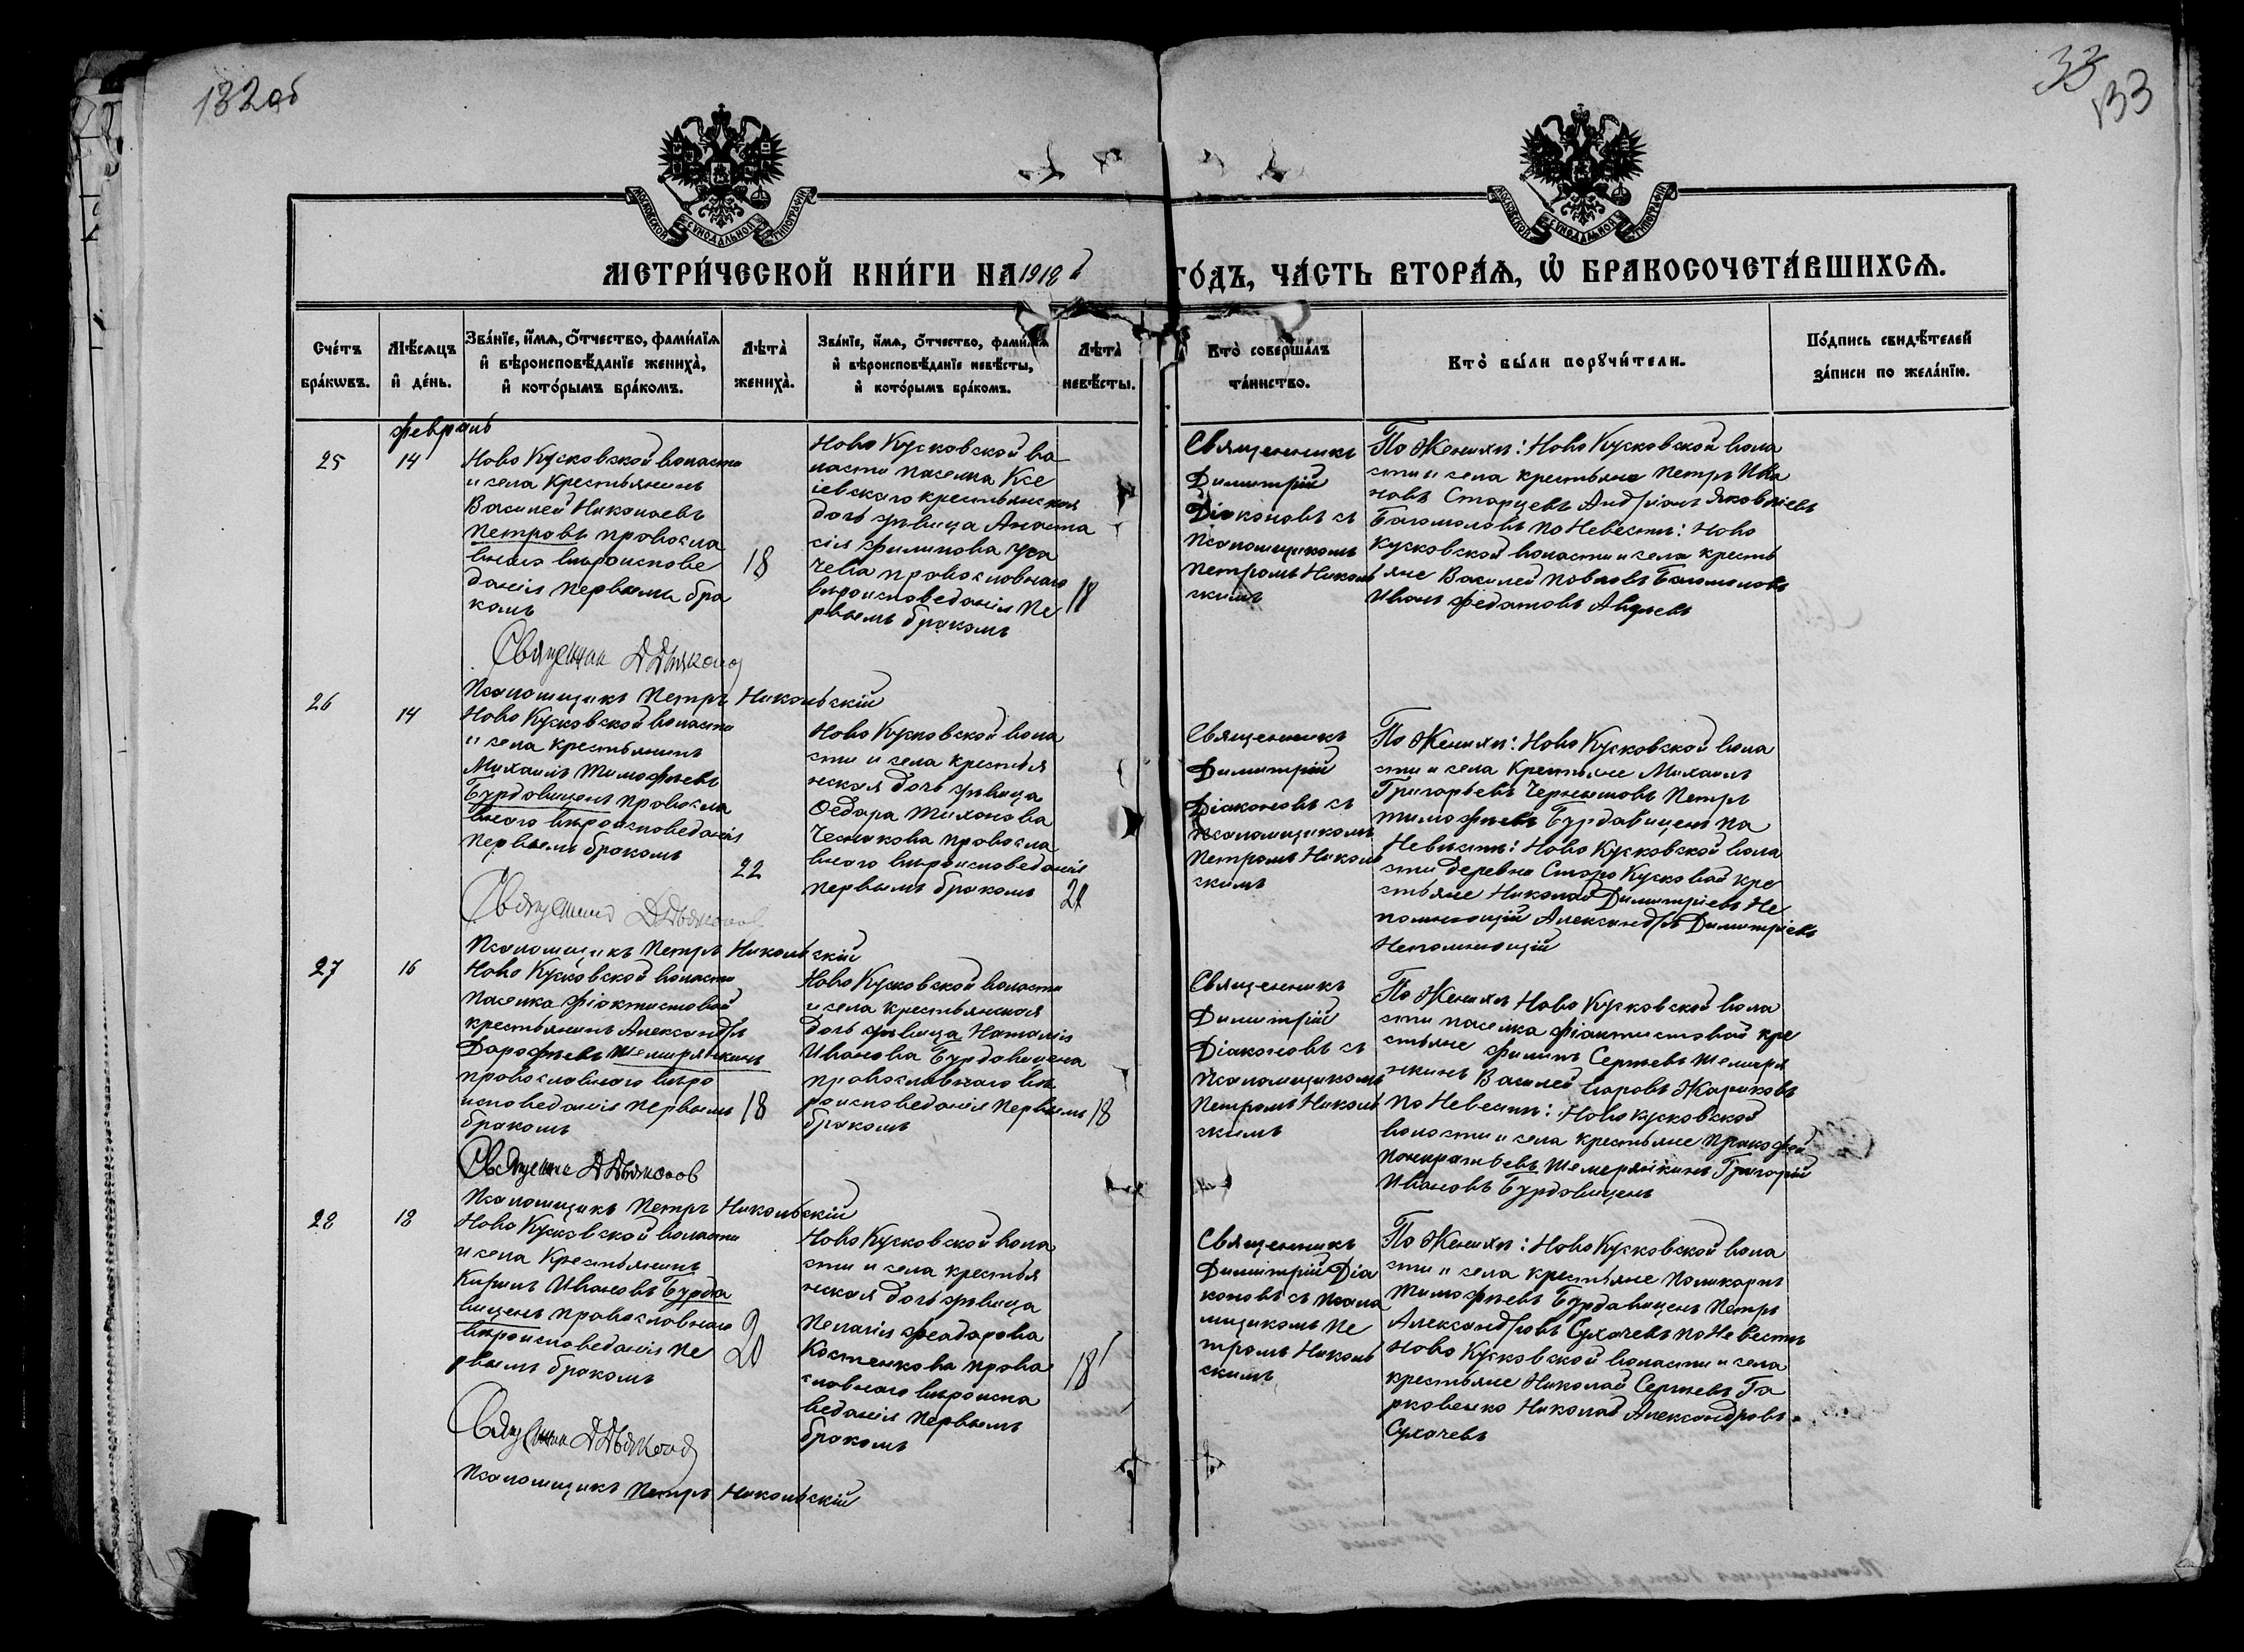 132 об
33
133
МОСКОВСКОЙ СѴНОДАЛЬНОЙ ТИПОГРАФІИ
МОСКОВСКОЙ СѴНОДАЛЬНОЙ ТИПОГРАФІИ
МЕТРИ́ЧЕСКОЙ КНИ́ГИ НА 1918
ГО́ДЪ, ЧА́СТЬ ВТОРА́Ѧ, Ѡ҆ БРАКОСОЧЕТА́ВШИХСѦ.
Сче́тъ
бра́кѡвъ.
Мѣ́сѧцъ
и҆ де́нь.
Зва́нїе, и҆́мѧ, ѻ҆́тчество, фами́лїѧ
и҆ вѣроисповѣ́данїе жениха̀,
и҆ кото́рымъ бра́комъ.
Лѣта̀
жениха̀.
Зва́нїе, и҆́мѧ, ѻ҆́тчество, фами́лїѧ
и҆ вѣроисповѣ́данїе невѣ́сты,
и҆ кото́рымъ бра́комъ.
Лѣта̀
невѣ́сты.
Кто̀ соверша́лъ
та́инство.
Кто̀ бы́ли порꙋчи́тели.
По́дпись свидѣ́телей
за́писи по жела́нїю.
февраль
25
14
Ново Кусковской воласти
и села Крестьянинъ
Василей Николаевъ
Петровъ провосла
внаго вѣроиспове
данія первымъ бра
комъ
18
Ново Кусковской во
ласти паселка Ксе
іевскаго крестьянская
дочь дѣвица Анаста
сія Филипова Уса
чева провославнаго
вѣроисповеданія пе
рвымъ бракомъ
18
Священникъ
Димитрій
Діаконовъ съ
Псаломщикомъ
Петромъ Николь
скимъ
По Женихѣ: Ново Кусковской вола
сти и села крестьяне Петръ Ива
новъ Старцевъ Андріанъ Яковлевъ
Богомоловъ по Невестѣ: Ново
Кусковской воласти и села кресть
яне Василей Повловъ Богомоловъ
Иванъ Федатовъ Авдеевъ
Священник Д Дьяконов
Псаломщикъ Петръ Никольскій
26
14
Ново Кусковской воласти
и села крестьянинъ
Михаилъ Тимофѣевъ
Бурдовицень провосла
внаго вѣроисповеданія
первымъ бракомъ
22
Ново Кусковской вола
сти и села крестья
нская дочь дѣвица
Федора Тихонова
Чеснакова провосла
внаго вѣроисповеданія
первымъ бракомъ
Священникъ
Димитрій
Діаконовъ съ
псаломщикомъ
Петромъ Николь
скимъ
По Женихѣ: Ново Кусковской вола
сти и села Крестьяне Михаилъ
Григорьевъ Чернышовъ Петръ
Тимофѣевъ Бурдавицень по
Невѣстѣ: Ново Кусковской вола
сти деревни Старо Кусковой кре
стьяне Николай Димитріевъ Не
помнющій Александръ Димитріевъ
Непомнющій
Священник Д Дьяконов
Псаломщикъ Петръ Никольскій
27
16
Ново Кусковской воласти
паселка Фіоктистовой
крестьянинъ Александръ
Дорофѣевъ Шемирянкинъ
провославнаго вѣро
исповеданія первымъ
бракомъ
18
Ново Кусковской воласти
и села крестьянская
дочь дѣвица Наталія
Иванова Бурдавицена
провославнаго вѣ
роисповеданія первымъ
бракомъ
18
Священникъ
Димитрій
Діаконовъ съ
Псаломщикомъ
Петромъ Николь
скимъ
По Женихѣ Ново Кусковской вола
сти паселка Фіоктистовой кре
стьяне Филипъ Сергѣевъ Шемиря
нкинъ Василей Егоровъ Жариковъ
по Невестѣ: Ново Кусковской
воласти и села крестьяне Пракофей
Понкратьевъ Шемерянкинъ Григорій
Ивановъ Бурдовицень
Священник Д Дьяконов
Псаломщикъ Петръ Никольскій
28
18
Ново Кусковской воласти
и села Крестьянинъ
Кирилъ Ивановъ Бурда
вицень провославнаго
вѣроисповеданія пе
рвымъ бракомъ
20
Ново Кусковской вола
сти и села крестья
нская дочь дѣвица
Пелагія Феадарова
Костенкова прова
славнаго вѣроиспа
веданія первымъ
бракомъ
18
Священникъ
Димитрій Діа
коновъ съ псало
мщикомъ Пе
тромъ Николь
скимъ
По Женихѣ: Ново Кусковской вола
сти и села крестьяне Поликарпъ
Тимофѣевъ Бурдавицень Петръ
Александровъ Сухачевъ по Невестѣ
Ново Кусковской воласти и села
крестьяне Николай Сергѣевъ Га
рковенко Николай Александровъ
Сухачевъ
Священник Д Дьяконов
Псаломщикъ Петръ Никольскій